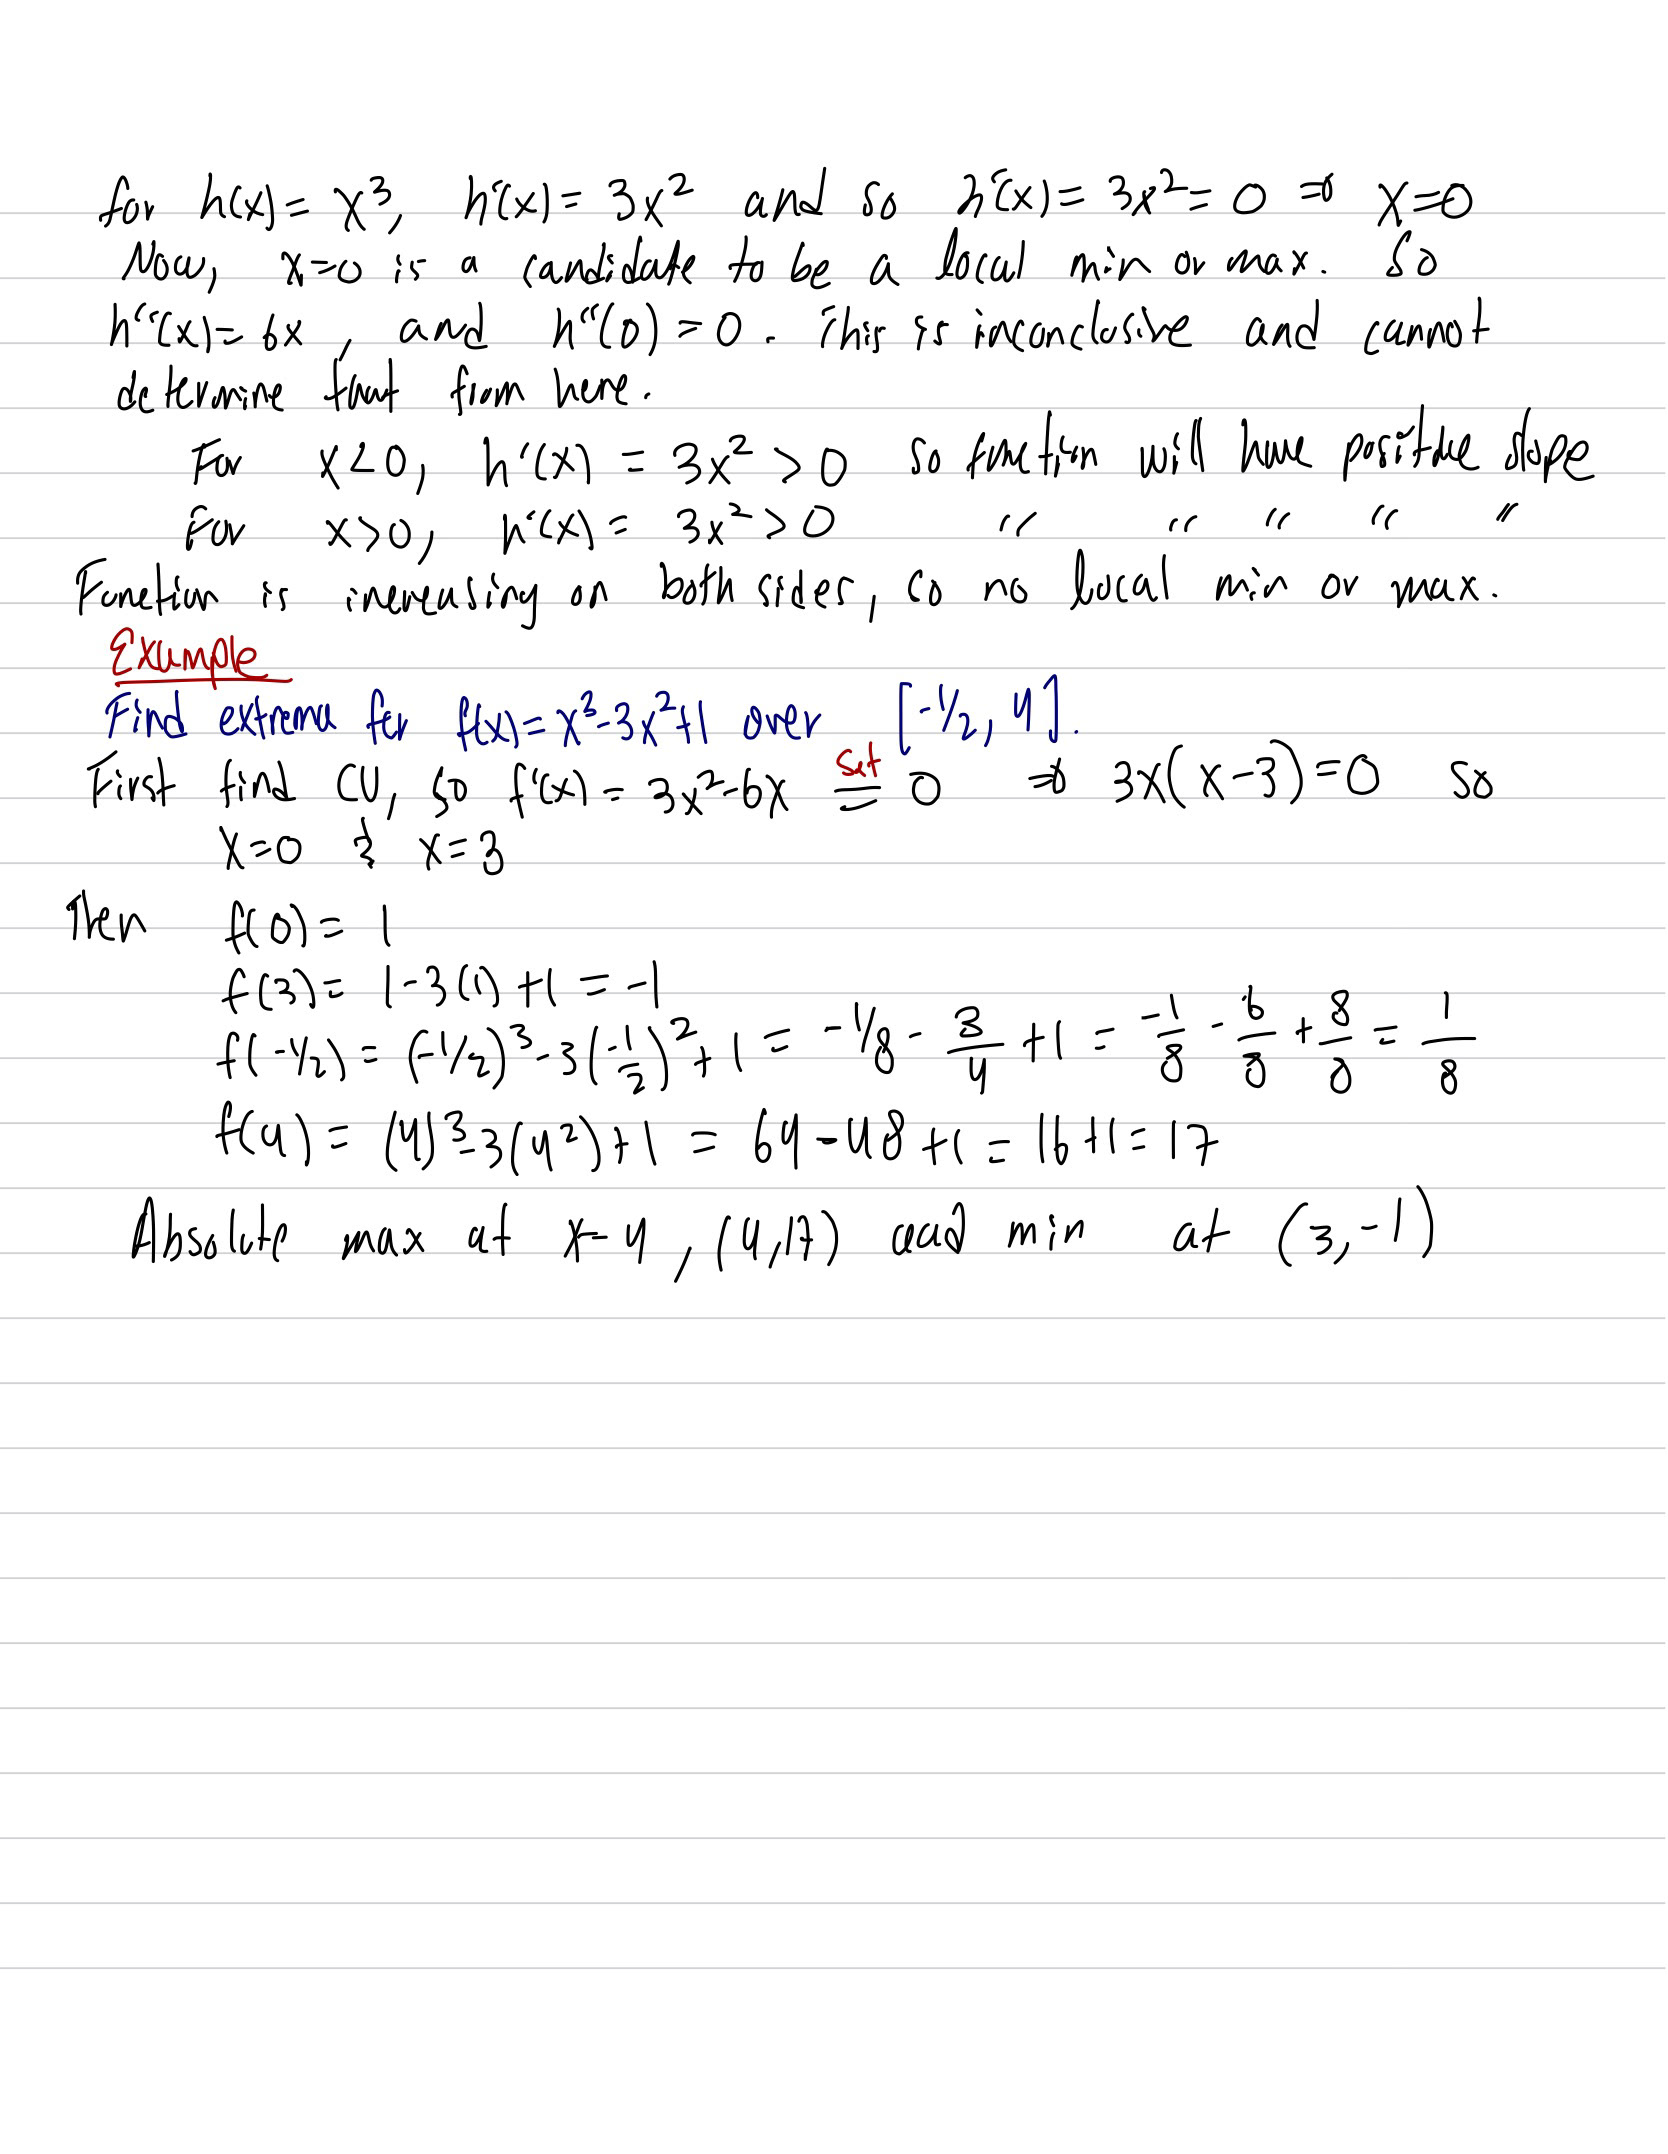 for h(x) = x³, h'(x) = 3x² and so h'(x) = 3x² = 0 ⇒ x=0
Now, x=0 is a candidate to be a local min or max. So
h''(x) = 6x, and h''(0) = 0. This is inconclusive and cannot
determine that from here.
For x<0, h'(x) = 3x² > 0 so function will have positive slope
For x>0, h'(x) = 3x² > 0 " " " " "
Function is increasing on both sides, so no local min or max.
Example
Find extrema for f(x) = x³-3x²+1 over [-1/2, 4].
First find CV, so f'(x) = 3x²-6x set = 0 ⇒ 3x(x-3)=0 so
x=0 & x=3
Then f(0) = 1
f(3) = 1-3(1)+1 = -1
f(-1/2) = (-1/2)³-3(-1/2)²+1 = -1/8 - 3/4 + 1 = -1/8 - 6/8 + 8/8 = 1/8
f(4) = (4)³-3(4²)+1 = 64-48+1 = 16+1 = 17
Absolute max at x=4, (4,17) and min at (3,-1)